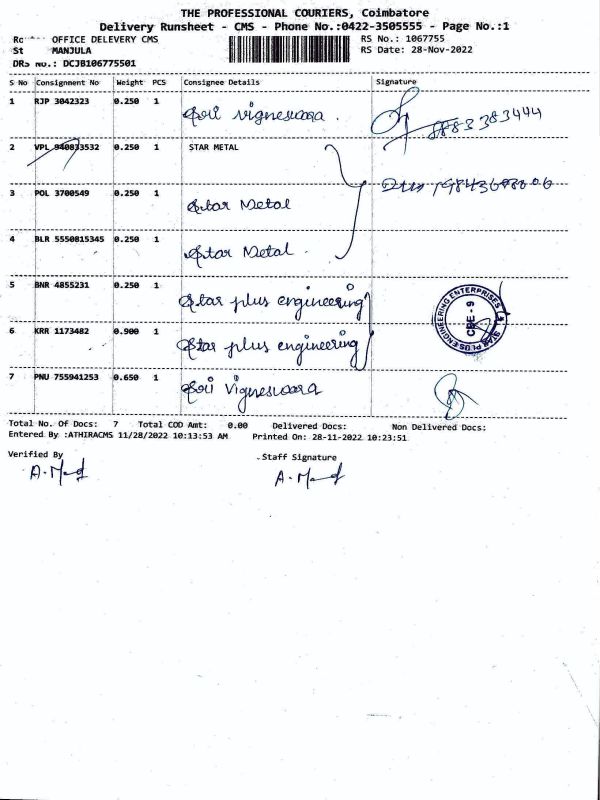 THE PROFESSIONAL COURIERS, Coimbatore
Delivery Runsheet - CMS - Phone No.:0422-3505555 - Page No.:1
OFFICE DELEVERY CMS RS No.: 1067755
St MANJULA RS Date: 28-Nov-2022
DRS No.: DCJB106775501
S No Consignment No Weight PCS Consignee Details Signature
1 RJP 3042323 0.250 1 Sri Vigneswara. 8883383444
2 VPL 940833532 0.250 1 STAR METAL
3 POL 3700549 0.250 1 Star Metal
4 BLR 5550815345 0.250 1 Star Metal.
5 BNR 4855231 0.250 1 Star plus engineering
STAR PLUS ENGINEERING ENTERPRISES CBE - 9
6 KRR 1173482 0.900 1 Star plus engineering
7 PNU 755941253 0.650 1 Sri Vigneswara
Total No. Of Docs: 7 Total COD Amt: 0.00 Delivered Docs: Non Delivered Docs:
Entered By :ATHIRACMS 11/28/2022 10:13:53 AM Printed On: 28-11-2022 10:23:51
Verified By Staff Signature